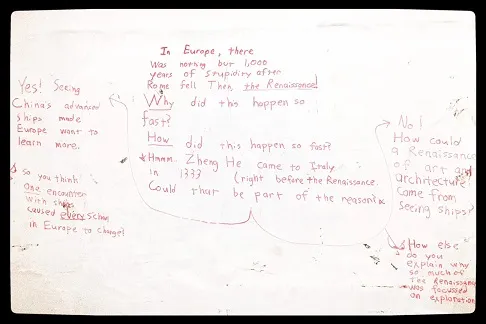 In Europe, there
was nothing but 1,000
years of stupidity after
Rome fell. Then, the Renaissance!
Why did this happen so
fast?
How did this happen so fast?
*Hmmm.. Zheng He came to Italy
in 1333 (right before the Renaissance.
Could that be part of the reason?*
Yes! Seeing
China's advanced
ships made
Europe want to
learn more.
so you think
One encounter
with ships
caused every school
in Europe to change?
No!
How could
a Renaissance
of art and
architecture
come from
seeing ships?
How else
do you
explain why
so much of
the Renaissance
was focussed
on exploration